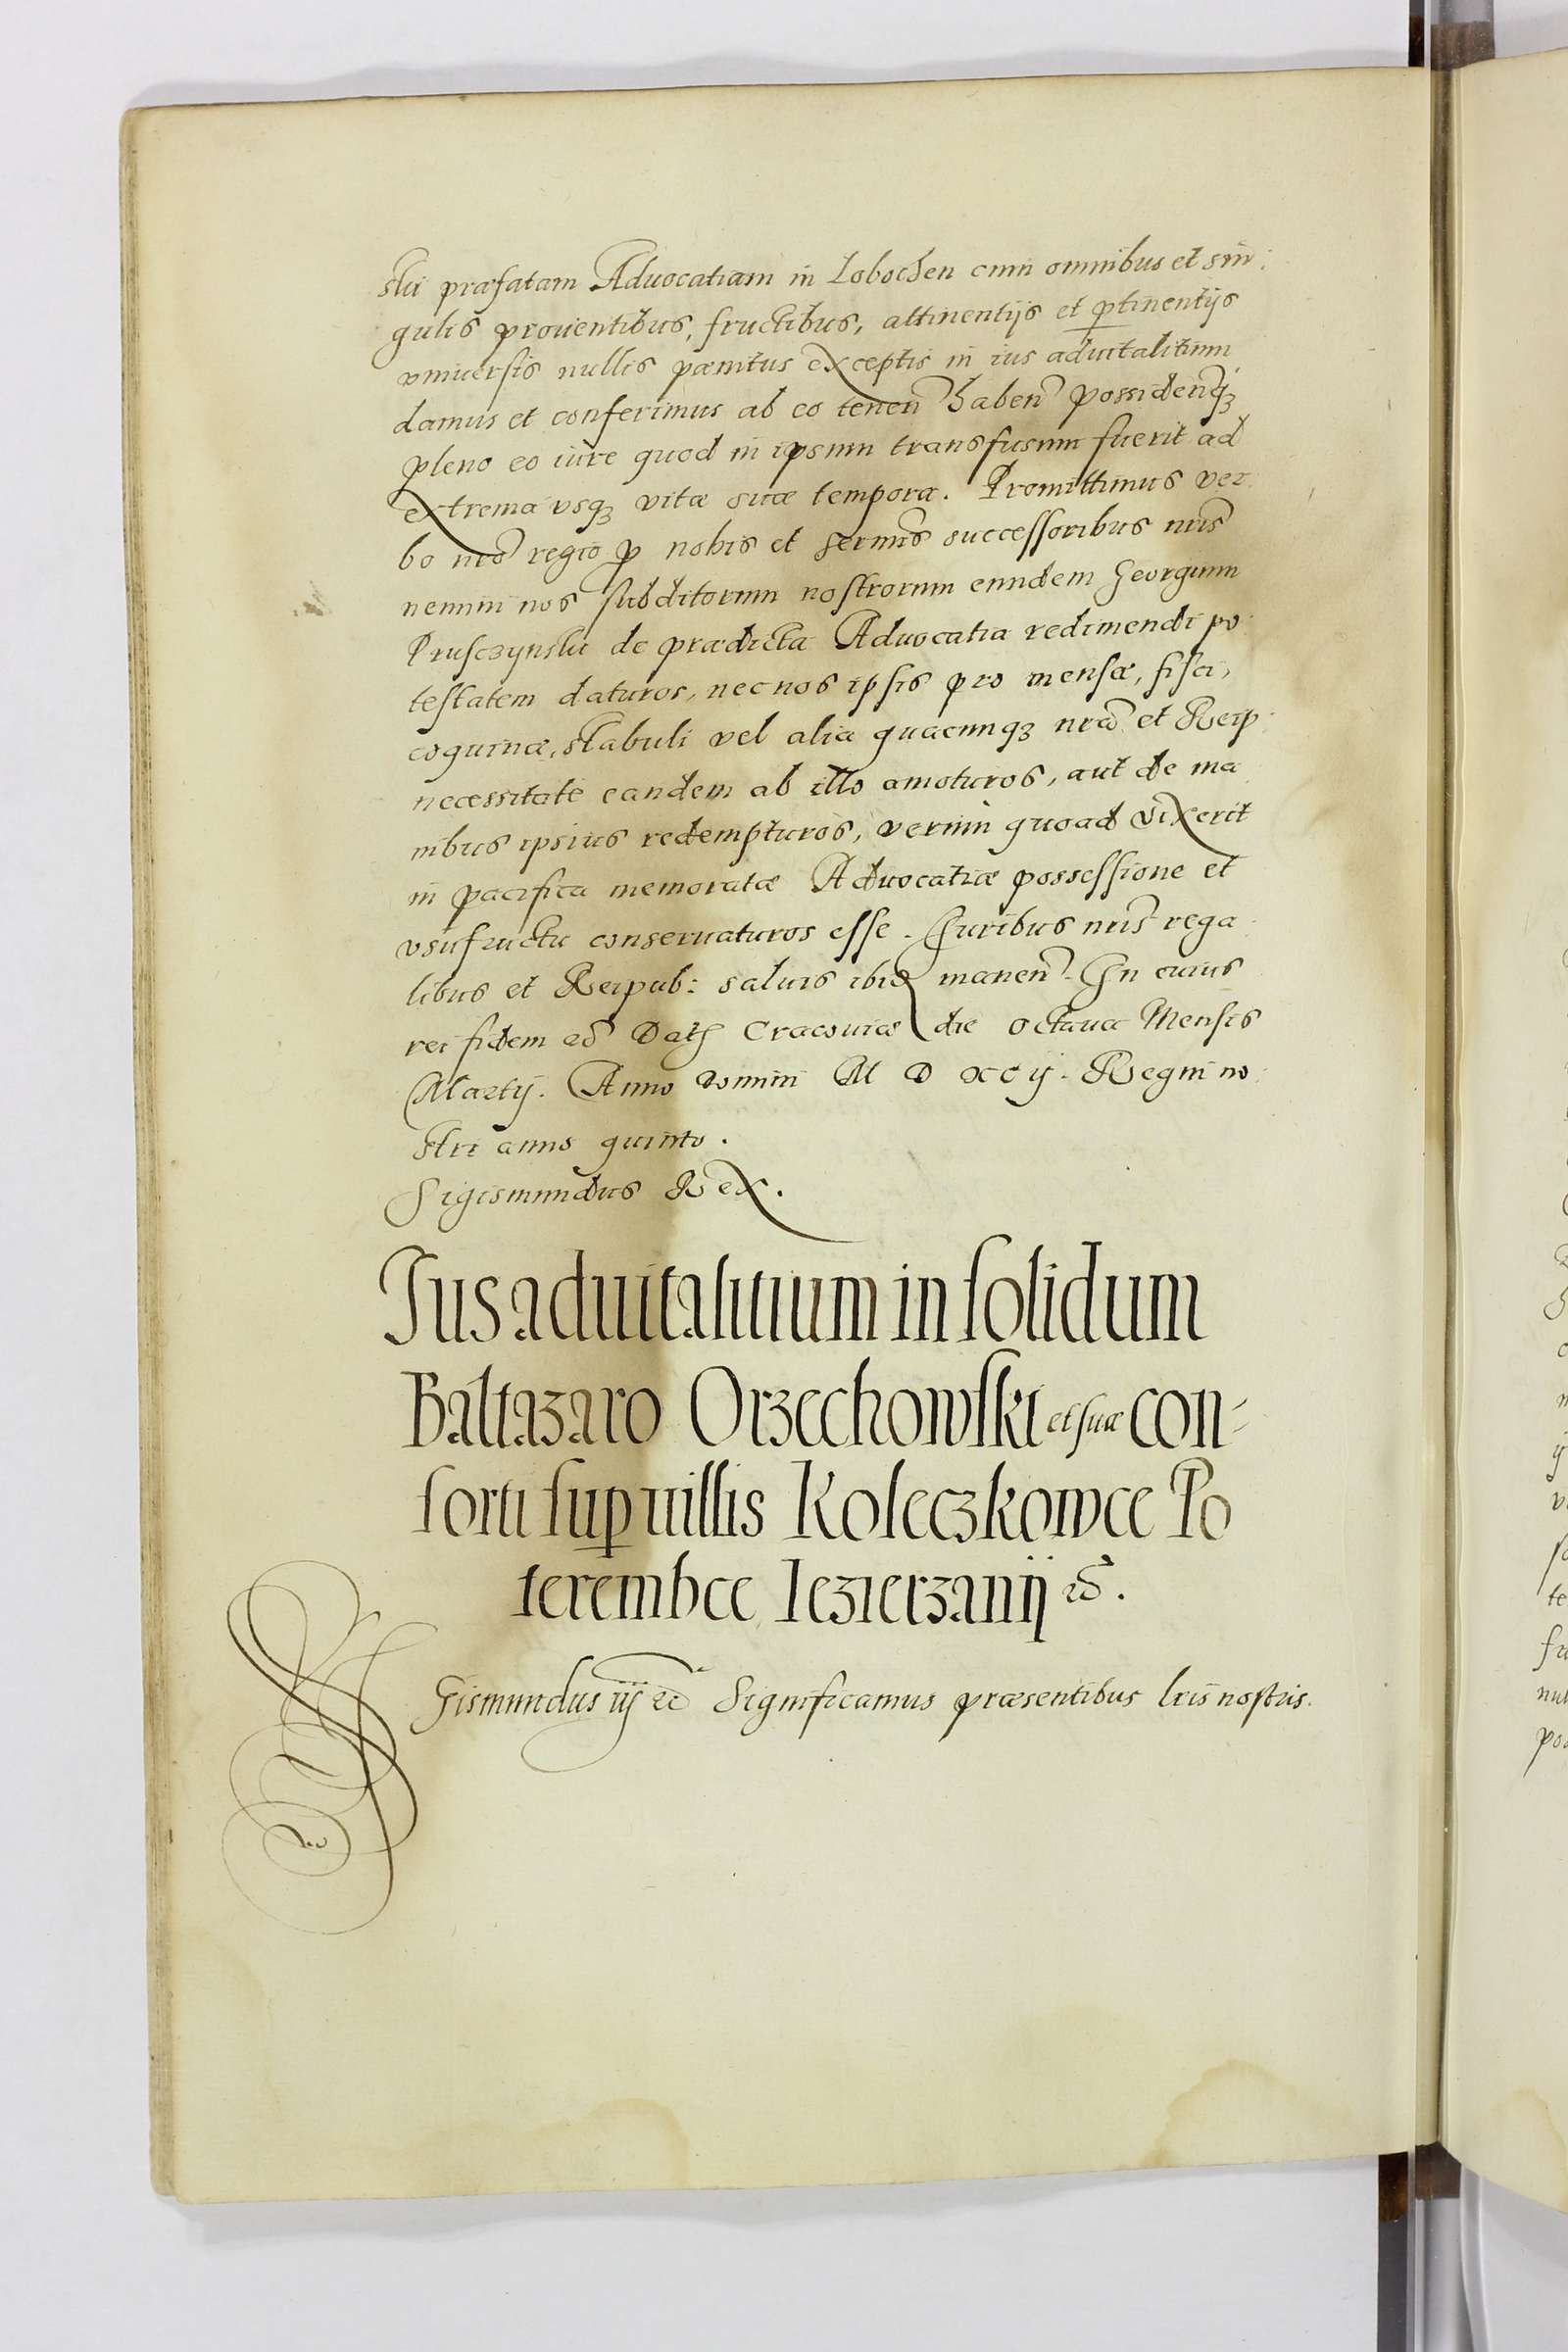 ski præfatam Advocatiam in Lobochen cum omnibus et sin:
gulis prouentibus, fructibus, attinentijs et ꝑtinentijs
vniuersis nullis pænitus exceptis in ius aduitalitium
damus et conferimus ab eo tenen̄ haben̄ possidenq̄ꝫ
pleno eo iure quod in ipsum transfusum fuerit ad
extrema vsqꝫ vitæ suæ tempora. Promittimus ver
bo nrō regio ꝓ nobis et sermis̄ successoribus nris̄
nemini nos subditorum nostrorum eundem Georgium
Prusczynski de prædicta Advocatia redimendi po:
testatem daturos, nec nos ipsis pro mensæ, fisci,
coquinæ, stabuli vel alia quacunqꝫ nrā et Reip:
necessitate eandem ab illo amoturos, aut de ma
nibus ipsius redempturos, verum quoad vixerit
in pacifica memoratæ Advocatiæ possessione et
vsufructu conseruaturos esse. Iuribus nris̄ rega
libus et Reipub: saluis ibid manen̄. In cuius
rei fidem ec̄ Dat Cracouiæ die octaua Mensis
Martij. Anno domini M D XC ij. Regni no:
stri anno quinto.
Sigismundus Rex.
Ius aduitalitium in solidum
Baltazaro Orzechowski et suæ con-
sorti suꝑ uillis Koleczkowce Po
terembce Iezierzanij ec̄.
Sigismundus iij ec̄ Significamus præsentibus lris nostris.